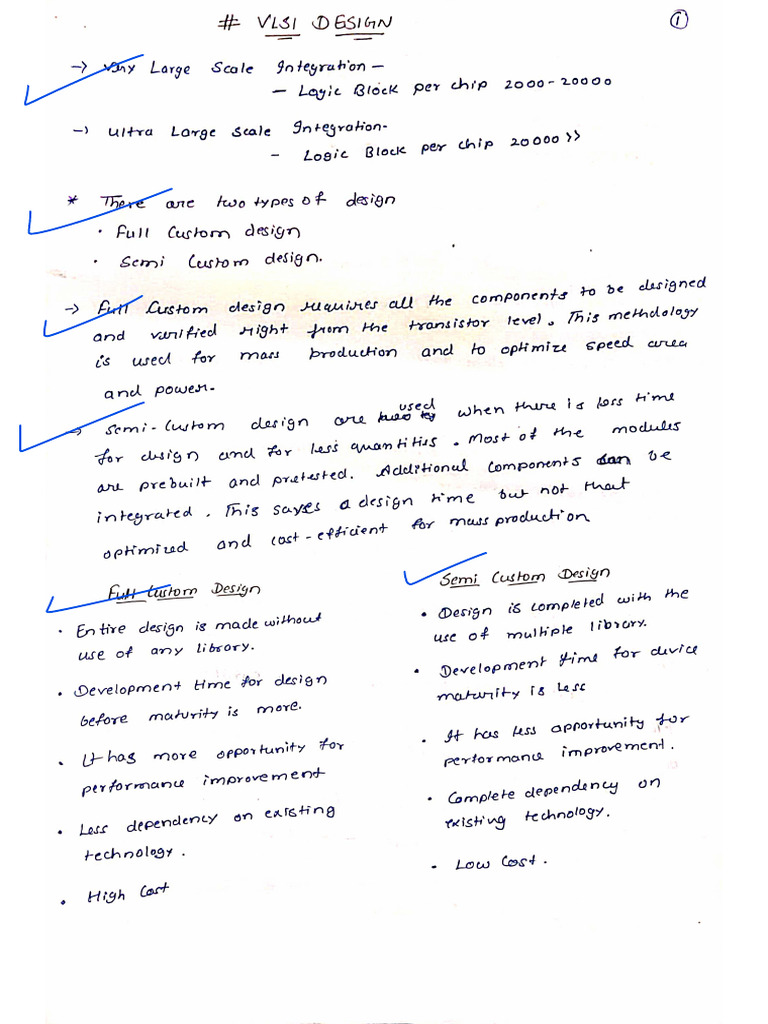 # VLSI DESIGN
1
→ Very Large Scale Integration -
- Logic Block per chip 2000-20000
→ Ultra Large Scale Integration-
- Logic Block per chip 20000 >>
* There are two types of design
· Full Custom design
· Semi Custom design.
→ Full Custom design requires all the components to be designed
and verified right from the transistor level. This methdology
is used for mass production and to optimize speed area
and power.
→ Semi-Custom design are used when there is less time
for design and for less quantities. Most of the modules
are prebuilt and pretested. Additional components can be
integrated. This sayes a design time but not that
optimized and cost-efficient for mass production
Full Custom Design
· Entire design is made without
use of any library.
· Development time for design
before maturity is more.
· It has more opportunity for
performance improvement
· Less dependency on existing
technology.
· High Cost
Semi Custom Design
· Design is completed with the
use of multiple library.
· Development time for device
maturity is less
· It has less apportunity for
performance improvement.
· Complete dependency on
existing technology.
· Low Cost.